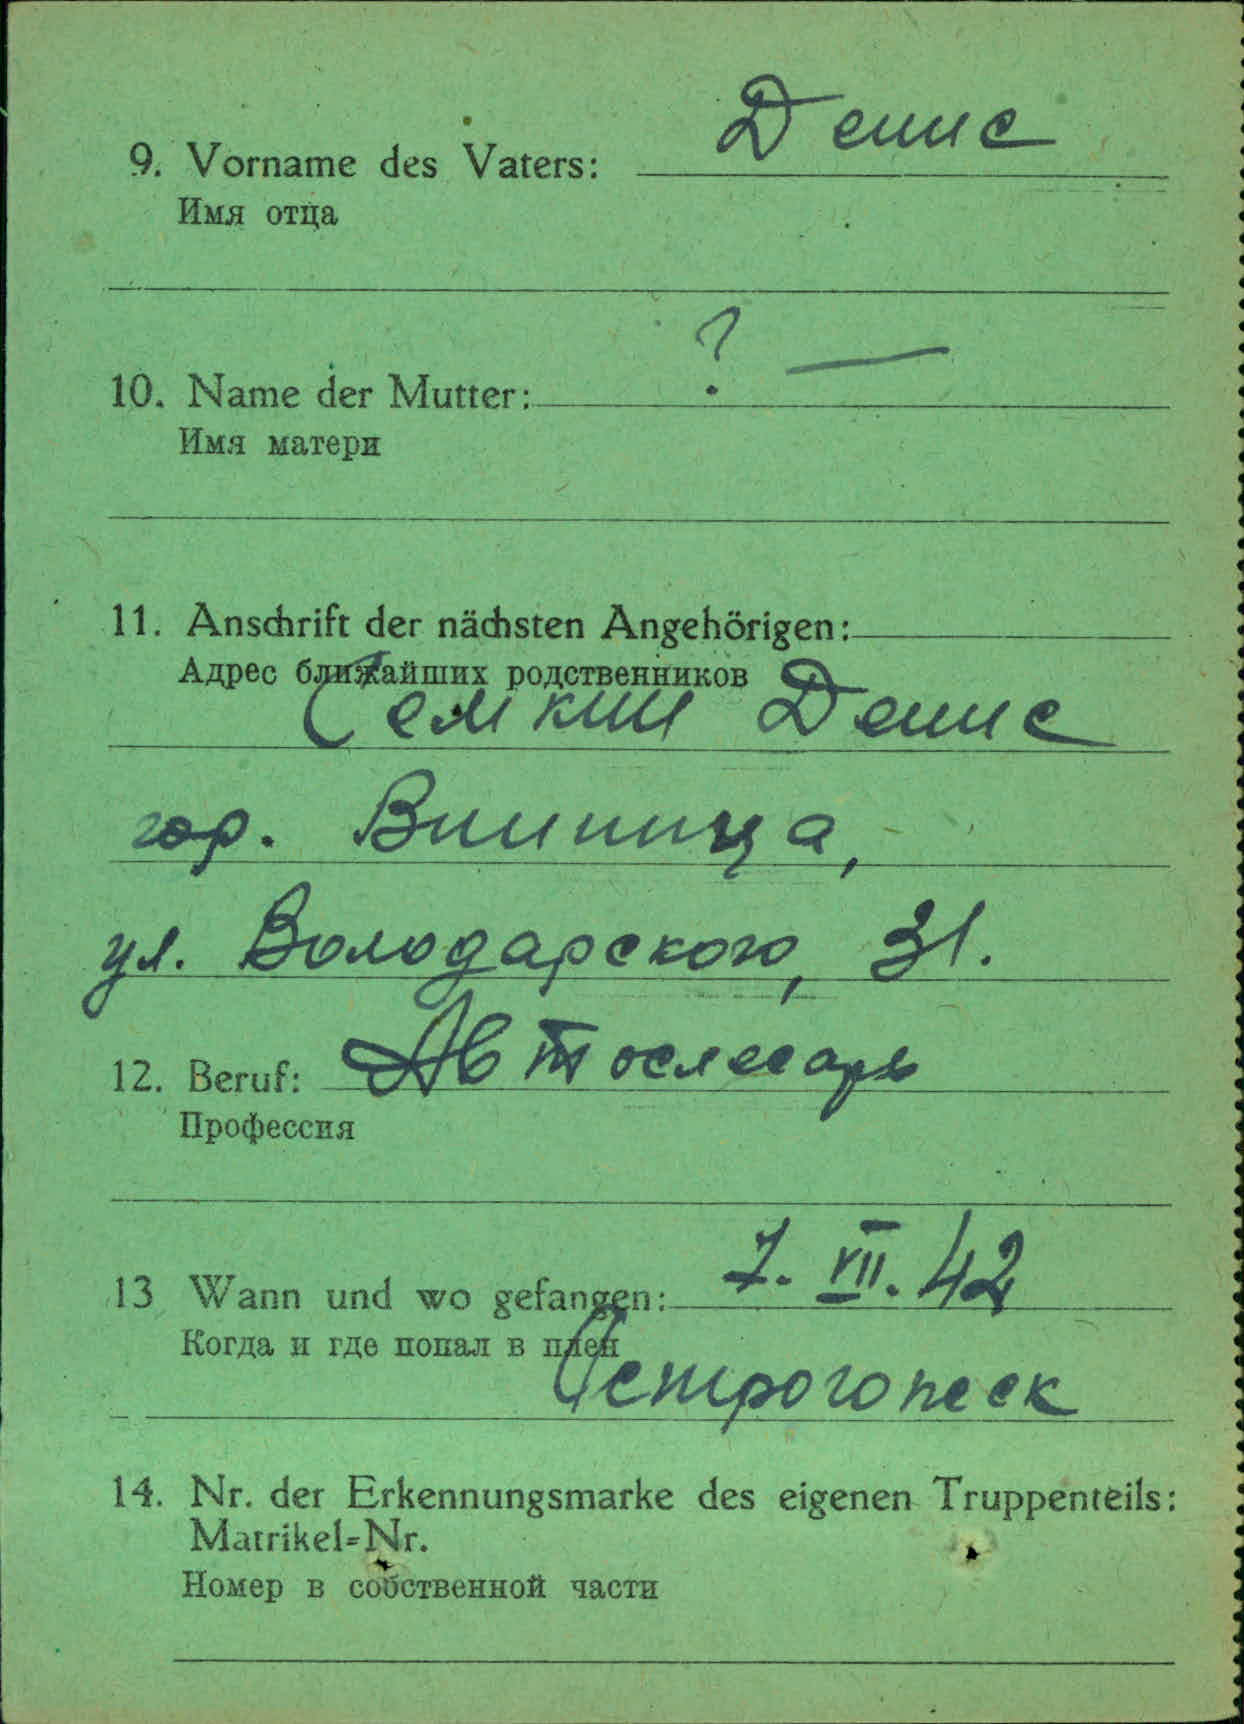 9. Vorname des Vaters: Денис
Имя отца
10. Name der Mutter: ? —
Имя матери
11. Anschrift der nächsten Angehörigen:
Адрес ближайших родственников
Семкин Денис
гор. Винница,
ул. Володарского, 31.
12. Beruf: Автослесарь
Профессия
13 Wann und wo gefangen: 7. VII. 42
Когда и где попал в плен
Острогопсск
14. Nr. der Erkennungsmarke des eigenen Truppenteils:
Matrikel-Nr.
Номер в собственной части